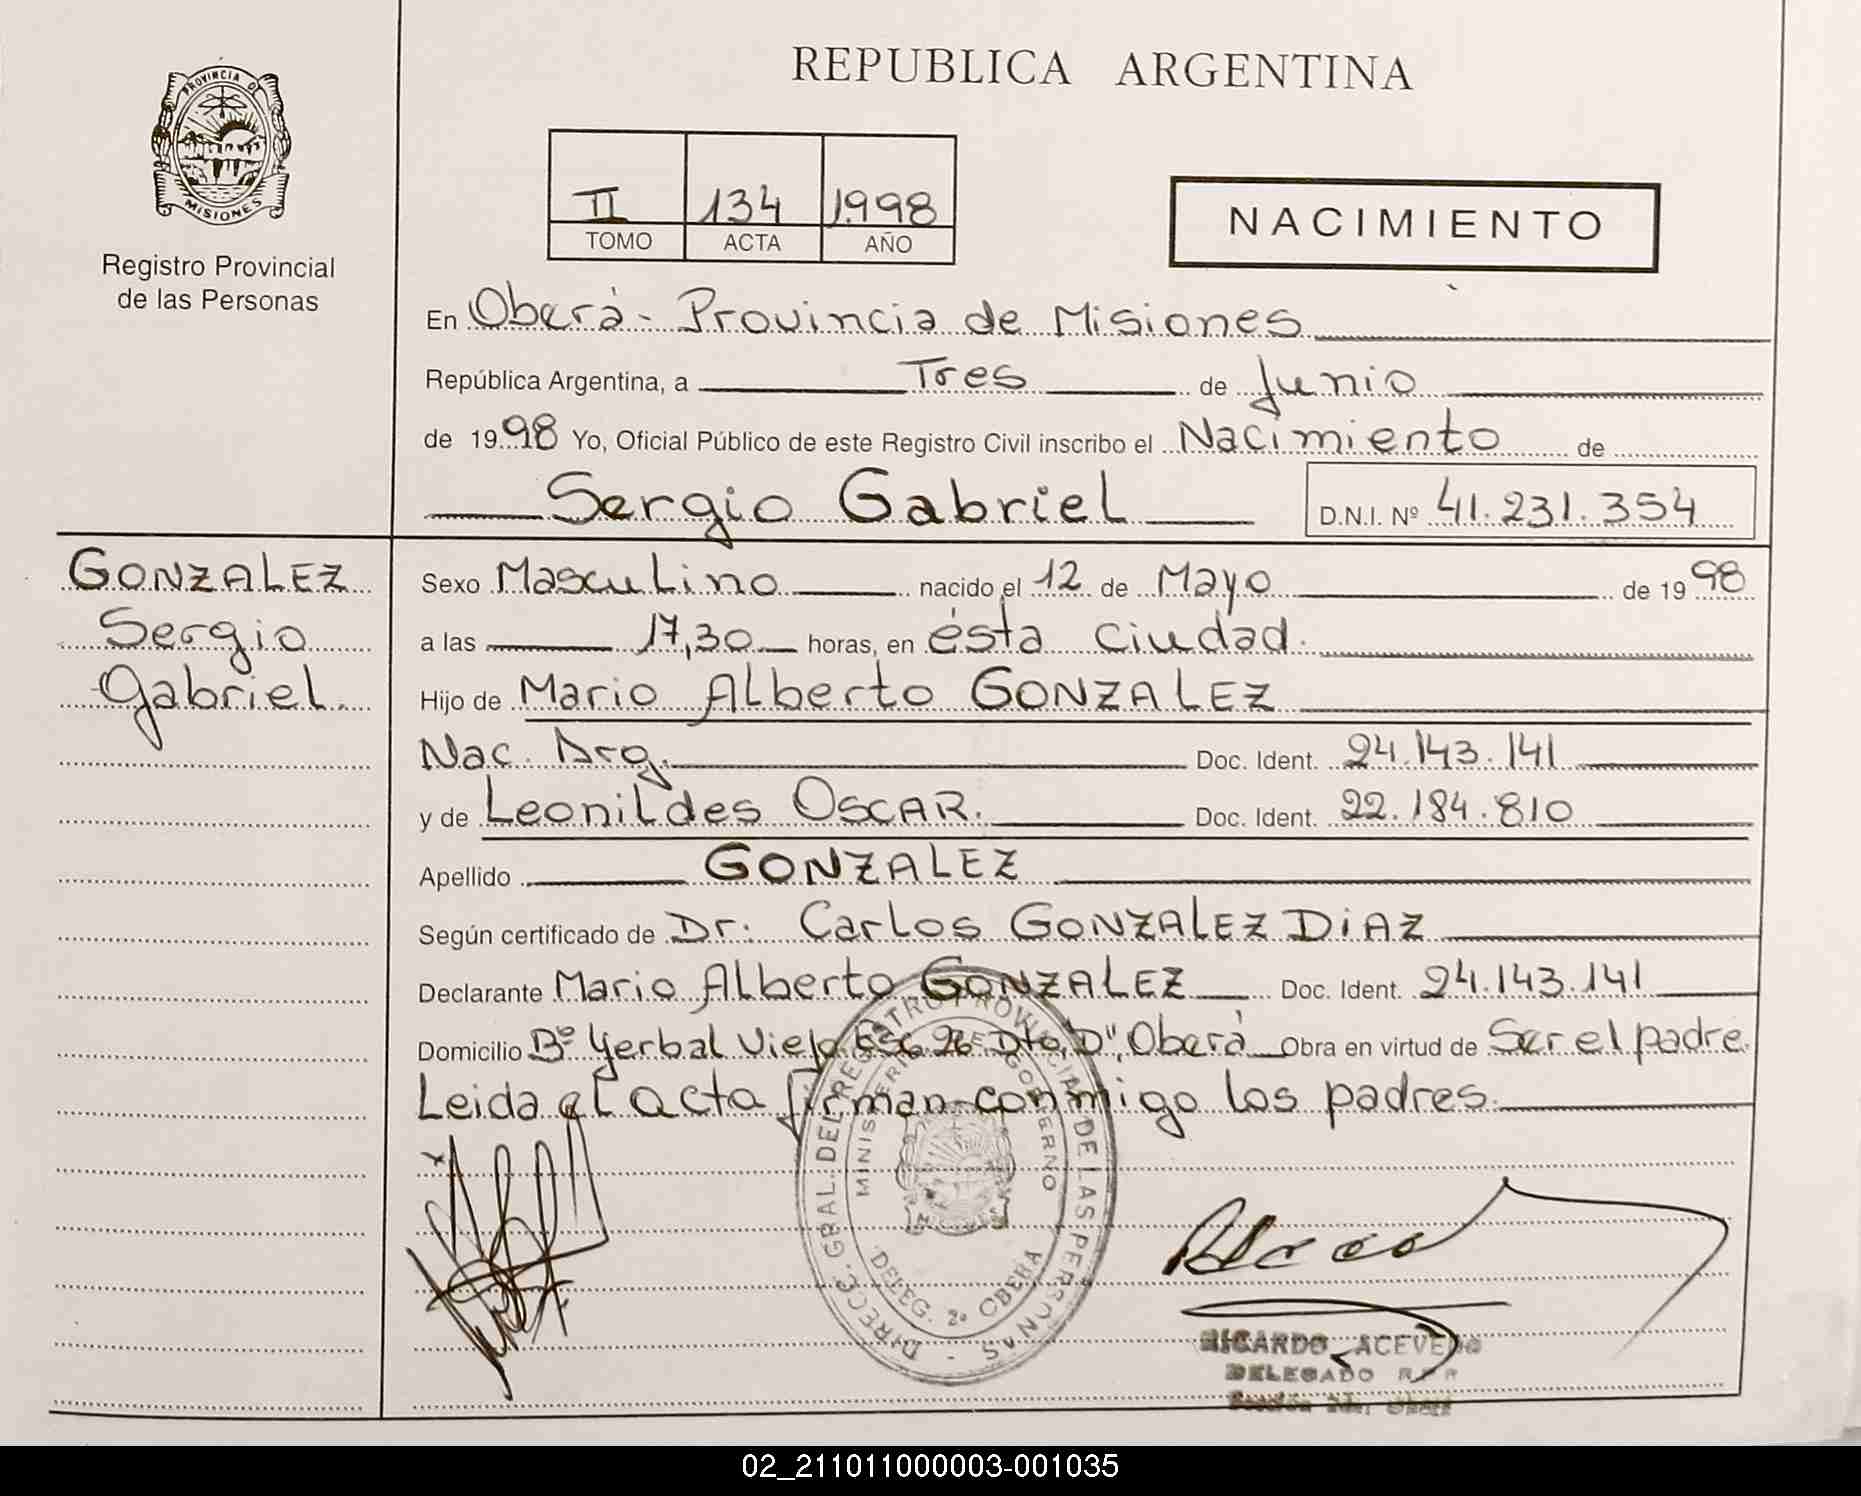 PROVINCIA DE
MISIONES
Registro Provincial
de las Personas
REPUBLICA ARGENTINA
II 134 1998
TOMO ACTA AÑO
NACIMIENTO
En Oberá - Provincia de Misiones
República Argentina, a Tres de Junio
de 1998 Yo, Oficial Público de este Registro Civil inscribo el Nacimiento de
Sergio Gabriel D.N.I. Nº 41.231.354
GONZALEZ
Sergio
Gabriel.
Sexo Masculino nacido el 12 de Mayo de 1998
a las 17,30 horas, en ésta ciudad.
Hijo de Mario Alberto GONZALEZ
Nac. Arg. Doc. Ident. 24.143.141
y de Leonildes OSCAR. Doc. Ident. 22.184.810
Apellido GONZALEZ
Según certificado de Dr. Carlos GONZALEZ DIAZ
Declarante Mario Alberto GONZALEZ Doc. Ident. 24.143.141
Domicilio Bº Yerbal Viejo Esc 26 Dto, "D", Oberá Obra en virtud de Ser el padre.
Leida el acta firman conmigo los padres.
DIRECC. GRAL. DEL REGISTRO PROVINCIAL DE LAS PERSONAS -
MINISTERIO DE GOBIERNO
DELEG. 2ª OBERA
RICARDO ACEVEDO
DELEGADO R P P
Sección 2da. Oberá
02_211011000003-001035